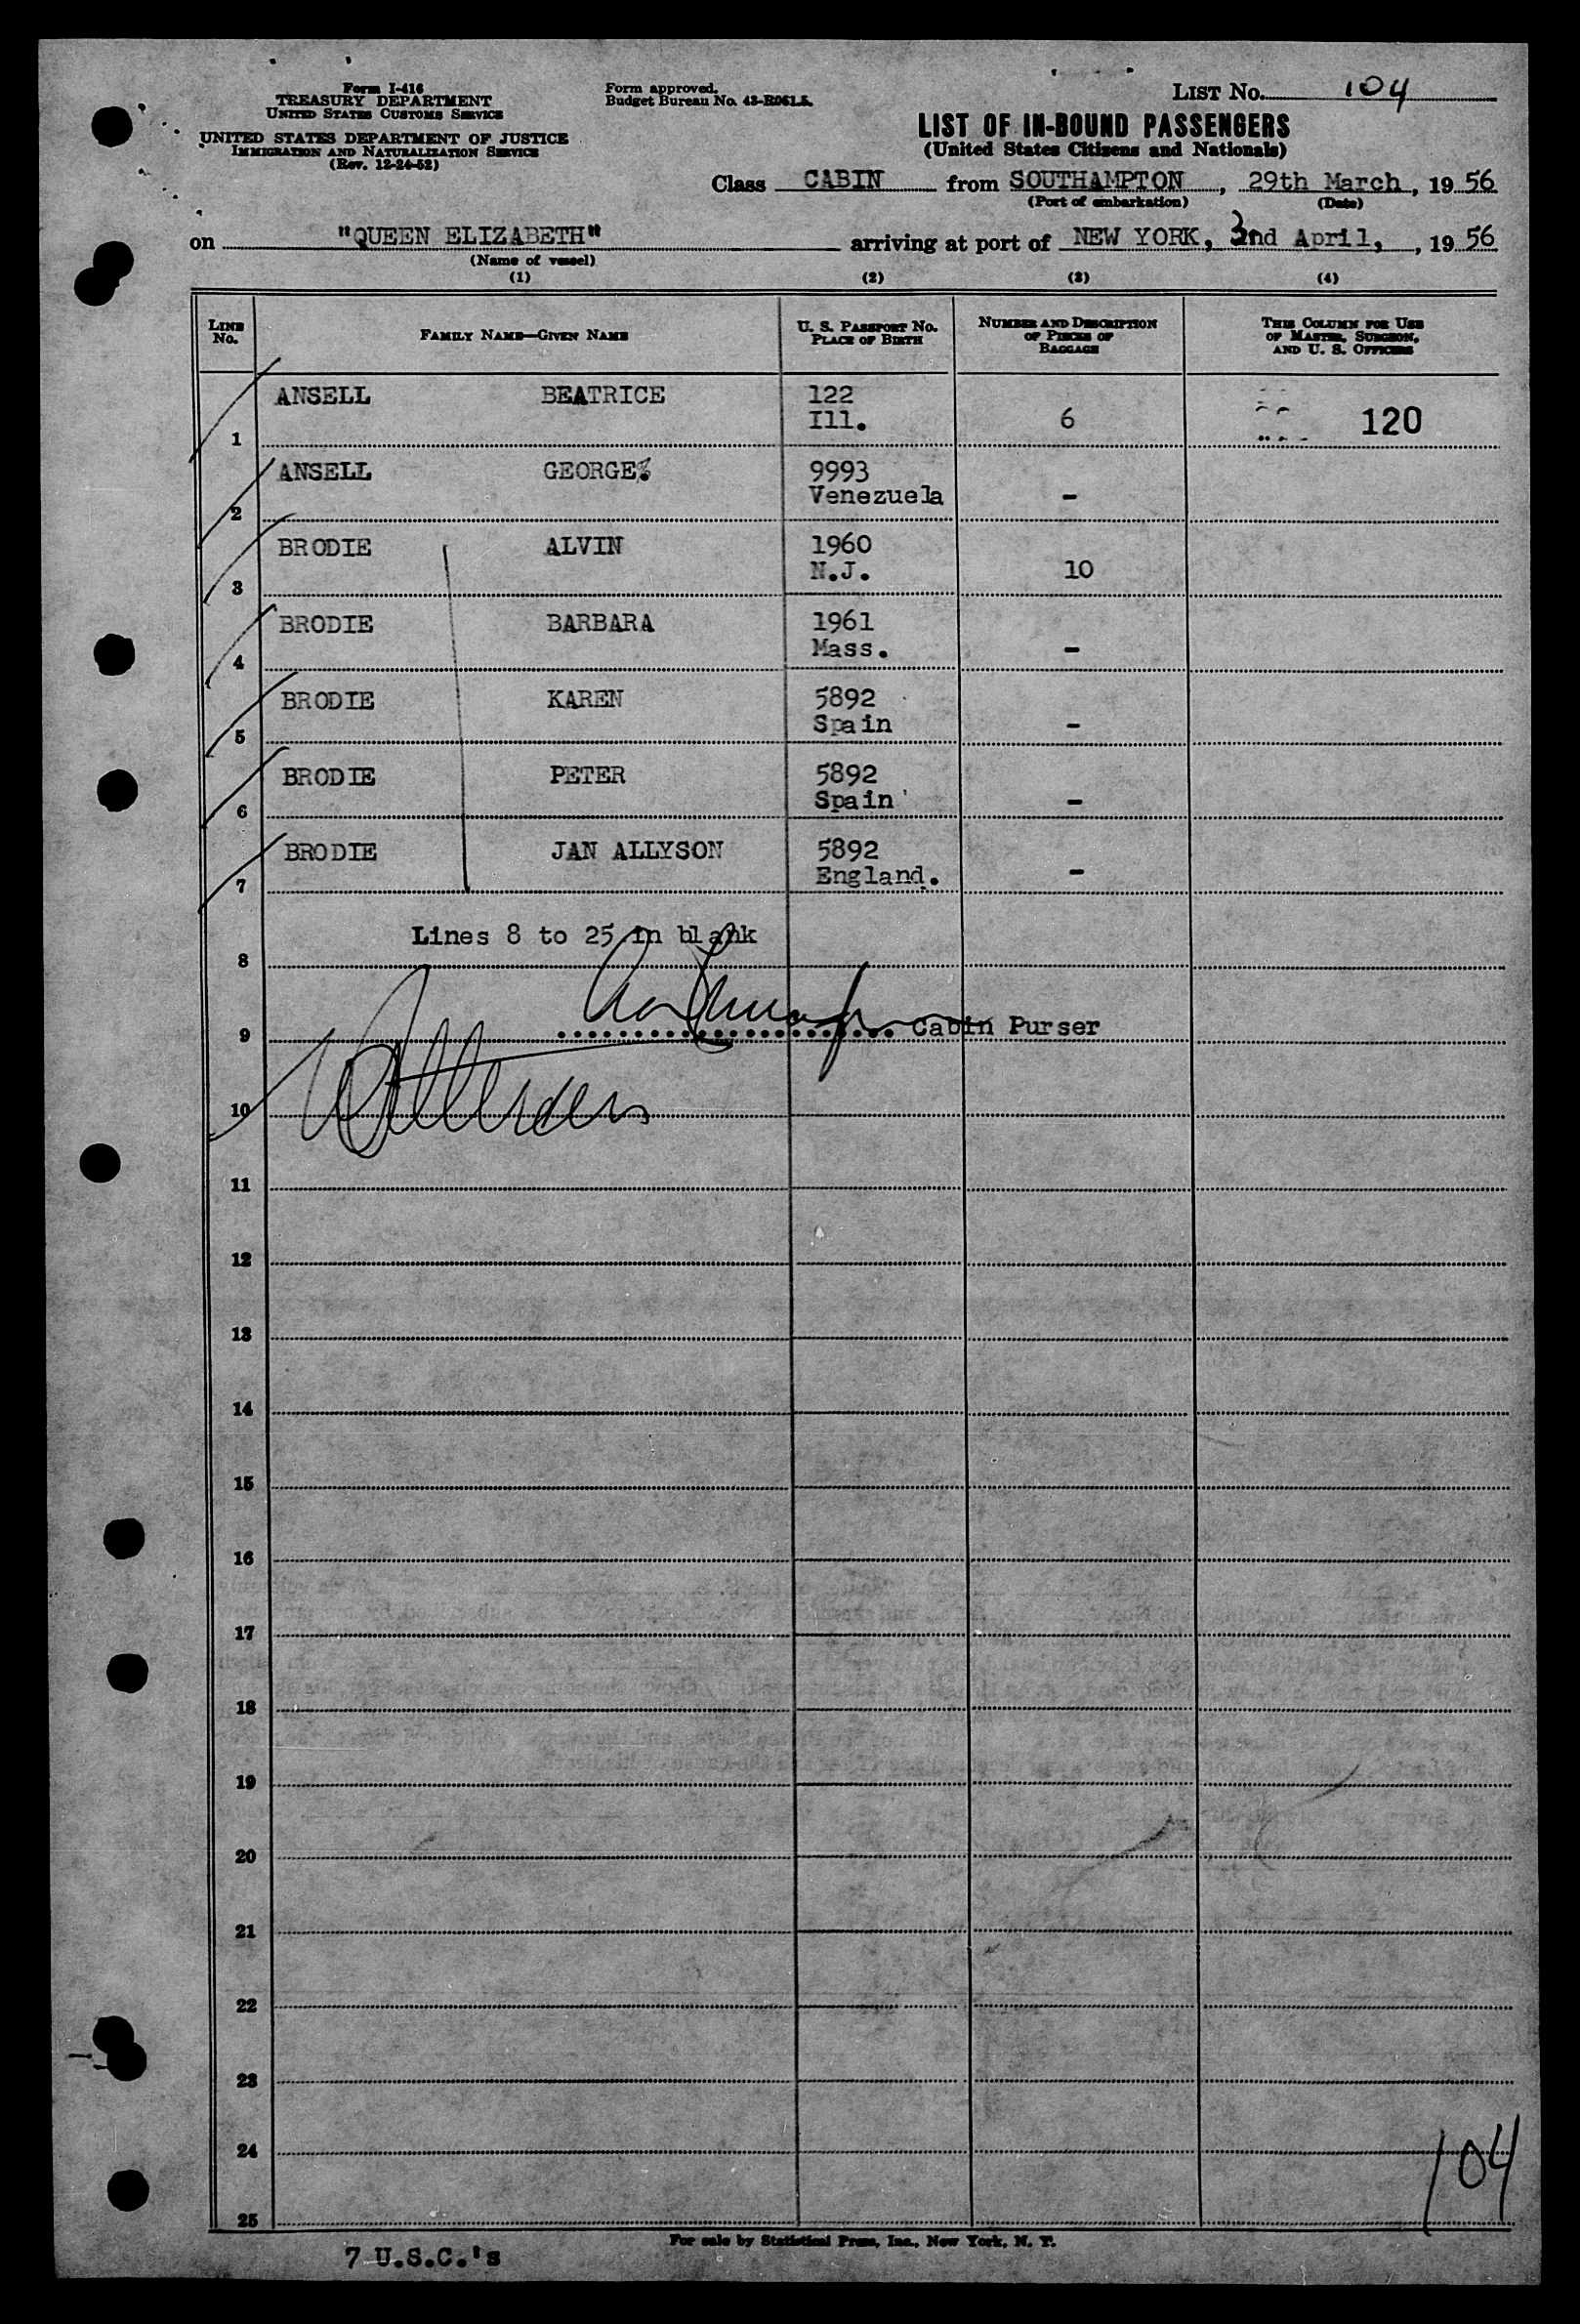 Form I-416
TREASURY DEPARTMENT
UNITED STATES CUSTOMS SERVICE
UNITED STATES DEPARTMENT OF JUSTICE
IMMIGRATION AND NATURALIZATION SERVICE
(Rev. 12-24-52)
Form approved.
Budget Bureau No. 43-R061.5.
LIST No. 104
LIST OF IN-BOUND PASSENGERS
(United States Citizens and Nationals)
Class CABIN from SOUTHAMPTON, 29th March, 1956
(Port of embarkation) (Date)
on "QUEEN ELIZABETH" arriving at port of NEW YORK, 3nd April, , 1956
(Name of vessel)
(1) (2) (3) (4)
LINE No. FAMILY NAME—GIVEN NAME U. S. PASSPORT No. PLACE OF BIRTH NUMBER AND DESCRIPTION OF PIECES OF BAGGAGE THIS COLUMN FOR USE OF MASTER, SURGEON, AND U. S. OFFICERS
1 ANSELL BEATRICE 122 Ill. 6 120
2 ANSELL GEORGE 9993 Venezuela -
3 BRODIE ALVIN 1960 N.J. 10
4 BRODIE BARBARA 1961 Mass. -
5 BRODIE KAREN 5892 Spain -
6 BRODIE PETER 5892 Spain -
7 BRODIE JAN ALLYSON 5892 England. -
Lines 8 to 25 in blank
8
9 Cabin Purser
10
11
12
13
14
15
16
17
18
19
20
21
22
23
24
104
25
For sale by Statistical Press, Inc., New York, N. Y.
7 U.S.C.'s